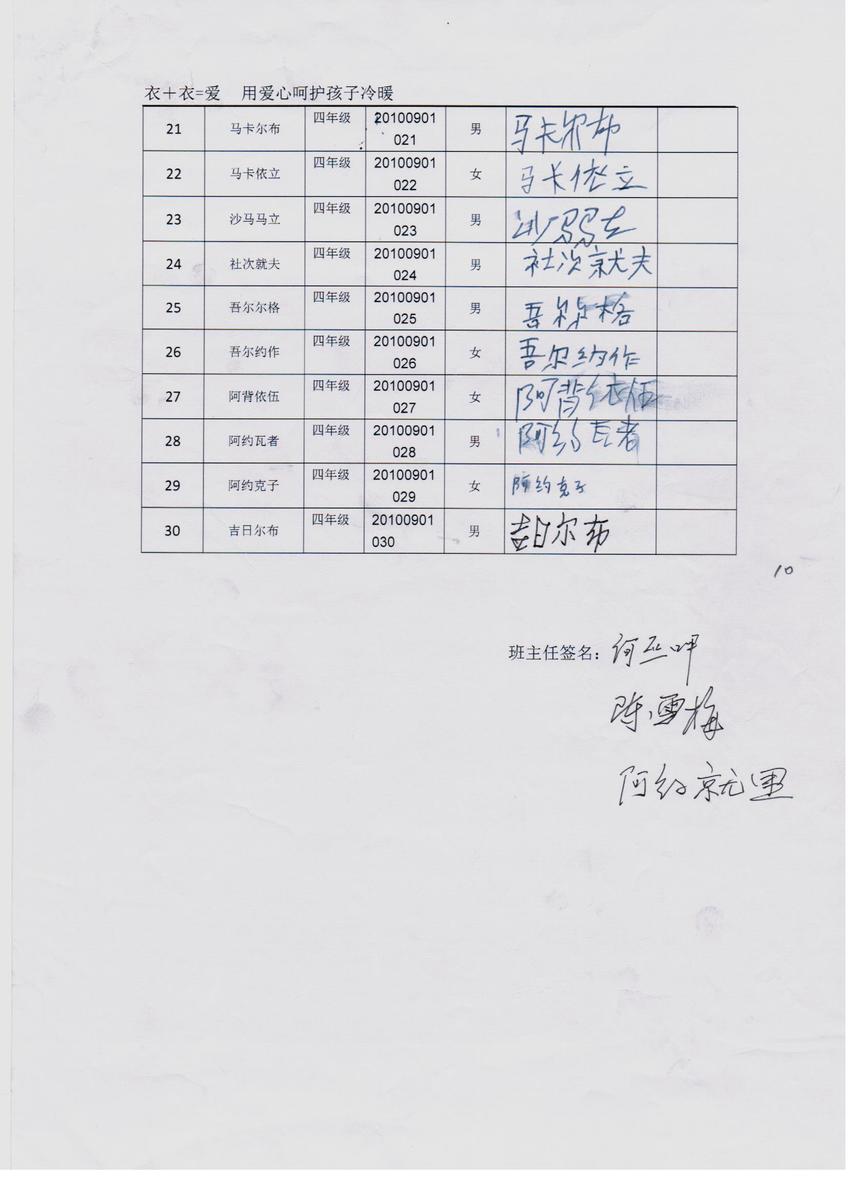 衣＋衣=爱 用爱心呵护孩子冷暖
21 马卡尔布 四年级 20100901 男 马卡尔布
021
22 马卡依立 四年级 20100901 女 马卡依立
022
23 沙马马立 四年级 20100901 男 沙马马立
023
24 社次就夫 四年级 20100901 男 社次就夫
024
25 吾尔尔格 四年级 20100901 男 吾尔尔格
025
26 吾尔约作 四年级 20100901 女 吾尔约作
026
27 阿背依伍 四年级 20100901 女 阿背依伍
027
28 阿约瓦者 四年级 20100901 男 阿约瓦者
028
29 阿约克子 四年级 20100901 女 阿约克子
029
30 吉日尔布 四年级 20100901 男 吉日尔布
030
10
班主任签名：
陈雪梅
阿约就里